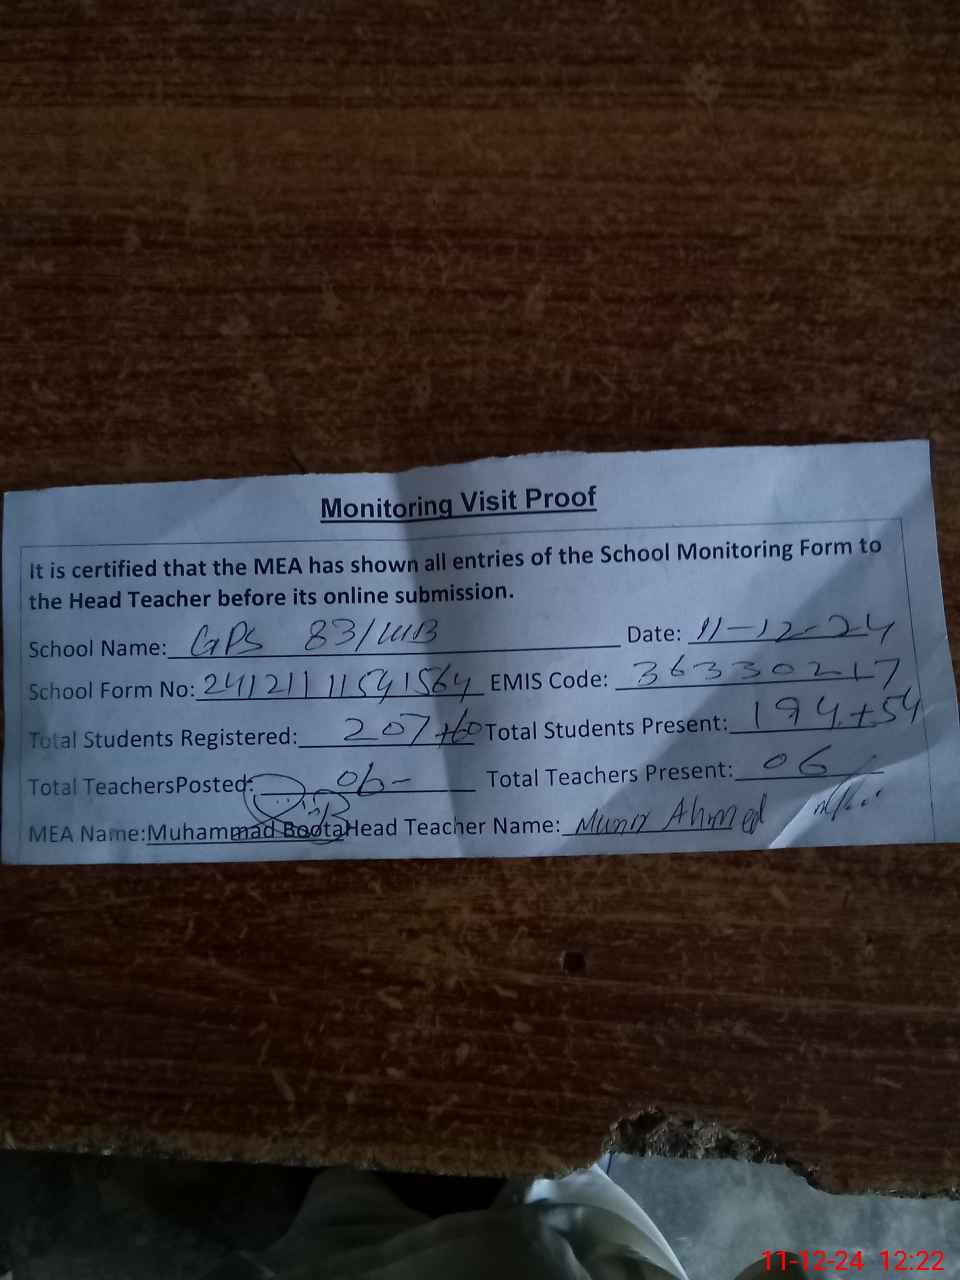 Monitoring Visit Proof
It is certified that the MEA has shown all entries of the School Monitoring Form to
the Head Teacher before its online submission.
School Name: GPS 83/WB Date: 11-12-24
School Form No: 24121111541564 EMIS Code: 36330217
Total Students Registered: 207+60 Total Students Present: 194+54
Total TeachersPosted: 06- Total Teachers Present: 06
MEA Name:Muhammad BootaHead Teacher Name: Munir Ahmed
11-12-24 12:22